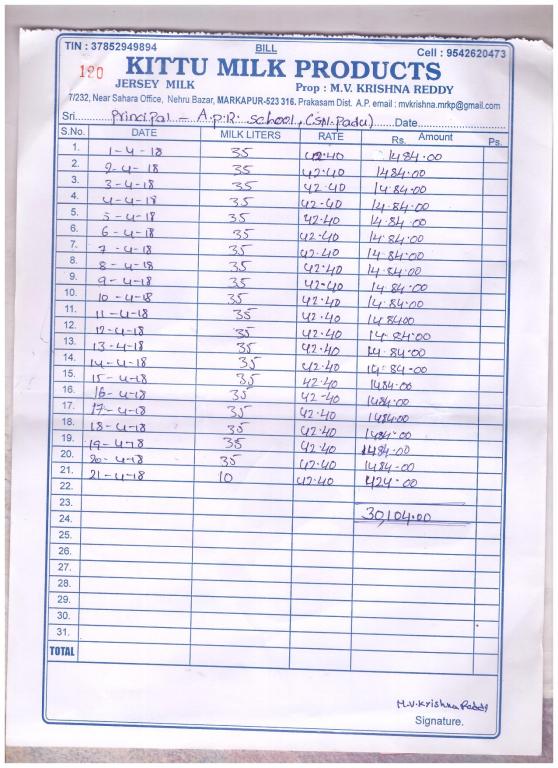 TIN : 37852949894 BILL Cell : 9542620473
120 KITTU MILK PRODUCTS
JERSEY MILK Prop : M.V. KRISHNA REDDY
7/232, Near Sahara Office, Nehru Bazar, MARKAPUR-523 316. Prakasam Dist. A.P. email : mvkrishna.mrkp@gmail.com
Sri....principal - A.P.R. school, (SN-Padu)......Date...............
S.No. DATE MILK LITERS RATE Rs. Amount Ps.
1. 1-4-18 35 42.40 1484.00
2. 2-4-18 35 42.40 1484.00
3. 3-4-18 35 42.40 1484.00
4. 4-4-18 35 42.40 1484.00
5. 5-4-18 35 42.40 1484.00
6. 6-4-18 35 42.40 1484.00
7. 7-4-18 35 42.40 1484.00
8. 8-4-18 35 42.40 1484.00
9. 9-4-18 35 42.40 1484.00
10. 10-4-18 35 42.40 1484.00
11. 11-4-18 35 42.40 1484.00
12. 12-4-18 35 42.40 1484.00
13. 13-4-18 35 42.40 1484.00
14. 14-4-18 35 42.40 1484.00
15. 15-4-18 35 42.40 1484.00
16. 16-4-18 35 42.40 1484.00
17. 17-4-18 35 42.40 1484.00
18. 18-4-18 35 42.40 1484.00
19. 19-4-18 35 42.40 1484.00
20. 20-4-18 35 42.40 1484.00
21. 21-4-18 10 42.40 424.00
22.
23.
24. 30,104.00
25.
26.
27.
28.
29.
30.
31.
TOTAL
M.V.Krishna Reddy
Signature.